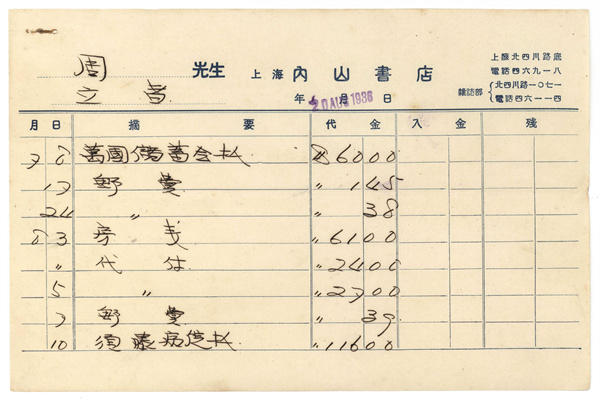 周 先生 上海 內山書店
上海北四川路底
電話四六九一八
雜誌部 北四川路一〇七一
電話四六一一四
立替 年 月 日
20 AUG 1936
月 日 摘要 代金 入金 残
7 8 萬國儲蓄会払 6000
13 郵費 〃 145
24 〃 38
8 3 房 〃 6100
〃 代付 〃 2400
5 〃 〃 2700
7 郵費 〃 39
10 須藤病院払 〃 11600